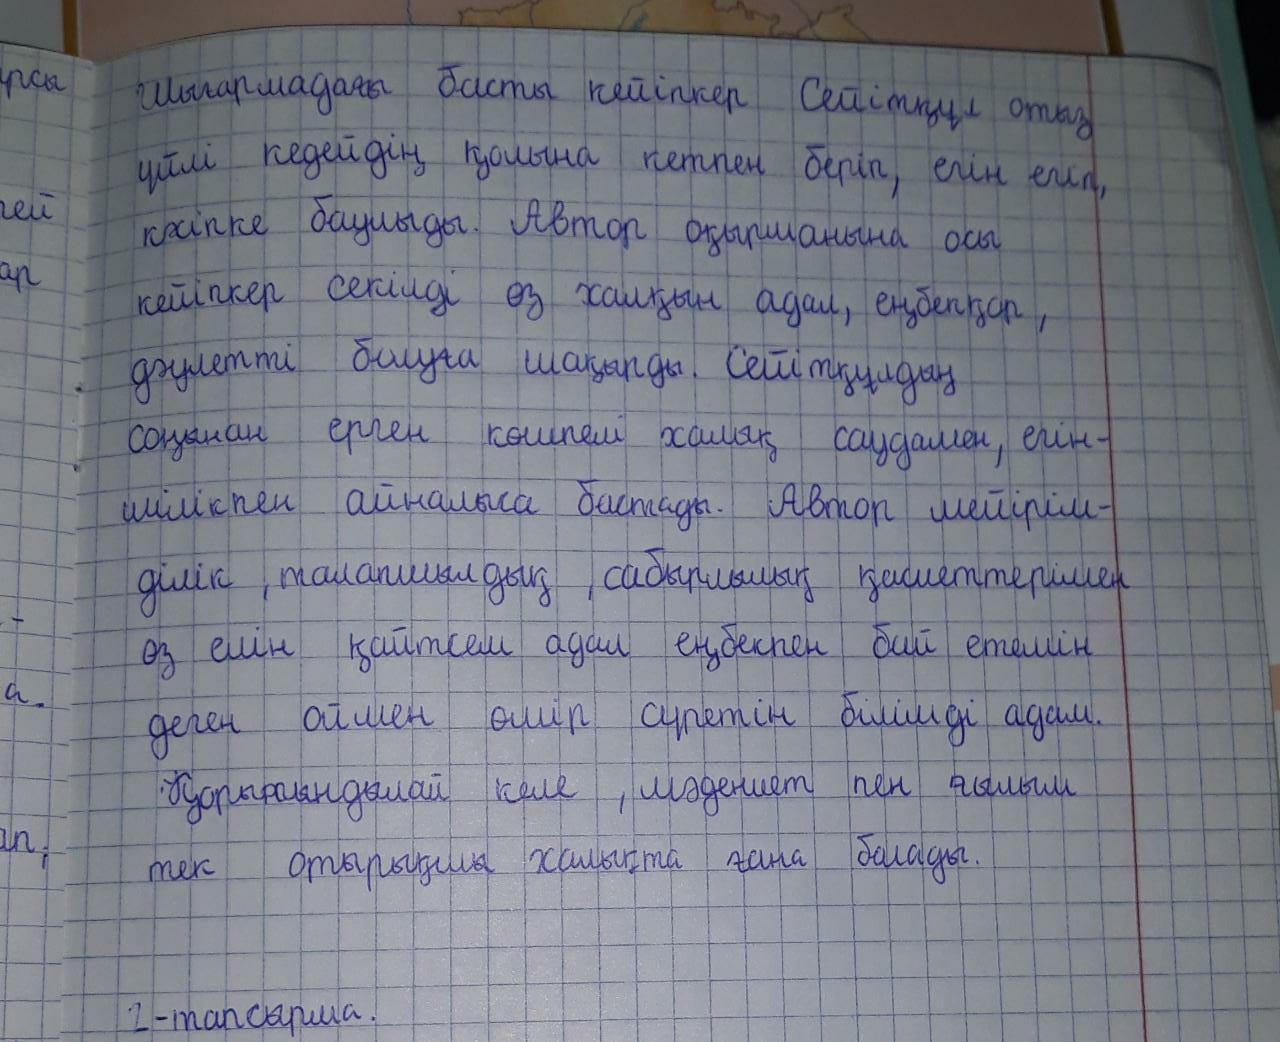 Шығармадағы басты кейіпкер Сейітқұл отыз
үйлі кедейдің қолына кетпен беріп, егін егіп,
кәсіпке баулыды. Автор оқырманына осы
кейіпкер секілді өз халқын адал, еңбекқор,
дәулетті болуға шақырды. Сейітқұлдың
соңынан ерген көшпелі халық саудамен, егін-
шілікпен айналыса бастады. Автор мейірім-
ділік, талапшылдық, сабырлылық қасиеттерімен
өз елін қайтсем адал еңбекпен бай етемін
деген оймен өмір сүретін білімді адам.
Қорытындылай келе, мәдениет пен ғылым
тек отырықшы халықта ғана болады.
2-тапсырма.